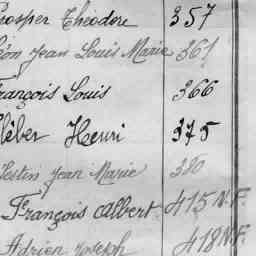 Prosper Théodore 357
Léon Jean Louis Marie 361
François Louis 366
Kléber Henri 375
Célestin Jean Marie 380
François Albert 415 N.F.
Adrien Joseph 418 N.F.